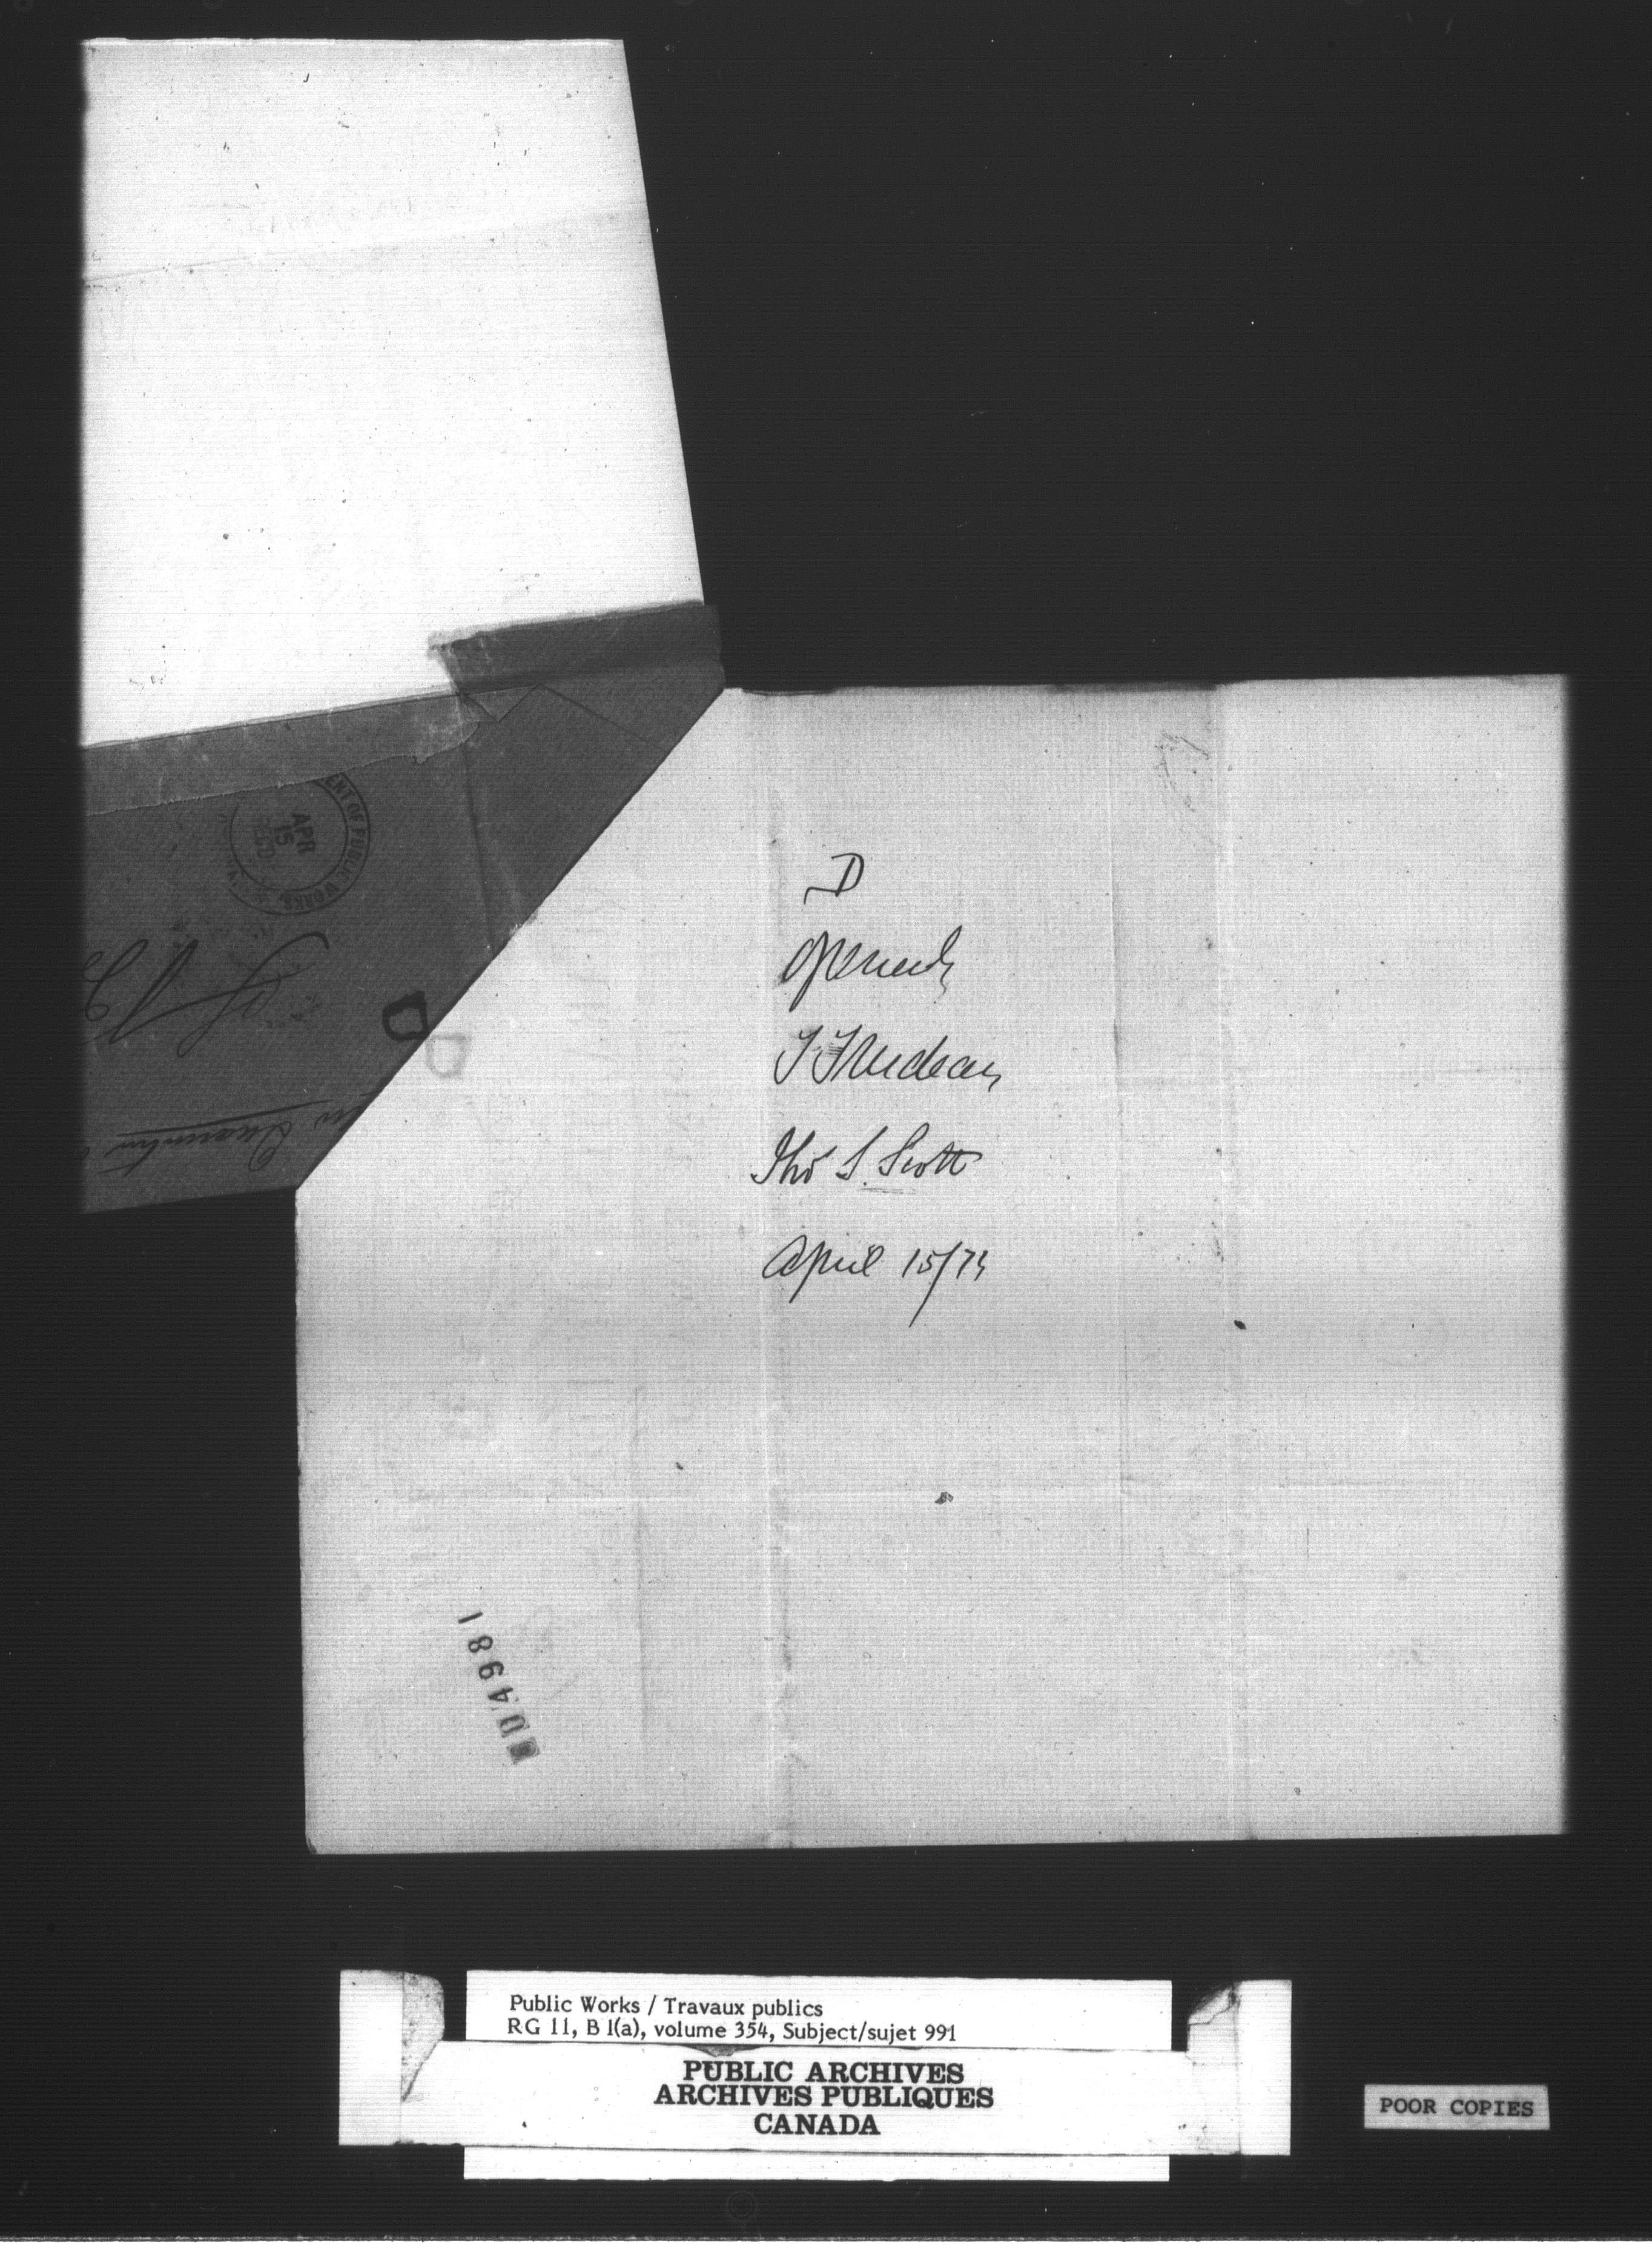 DEPARTMENT OF PUBLIC WORKS
APR
15
REC'D
D
D
Opened
T Trudeau
Thos S. Scott
April 15/74
04981
Public Works / Travaux publics
RG 11, B 1(a), volume 354, Subject/sujet 991
PUBLIC ARCHIVES
ARCHIVES PUBLIQUES
CANADA
POOR COPIES